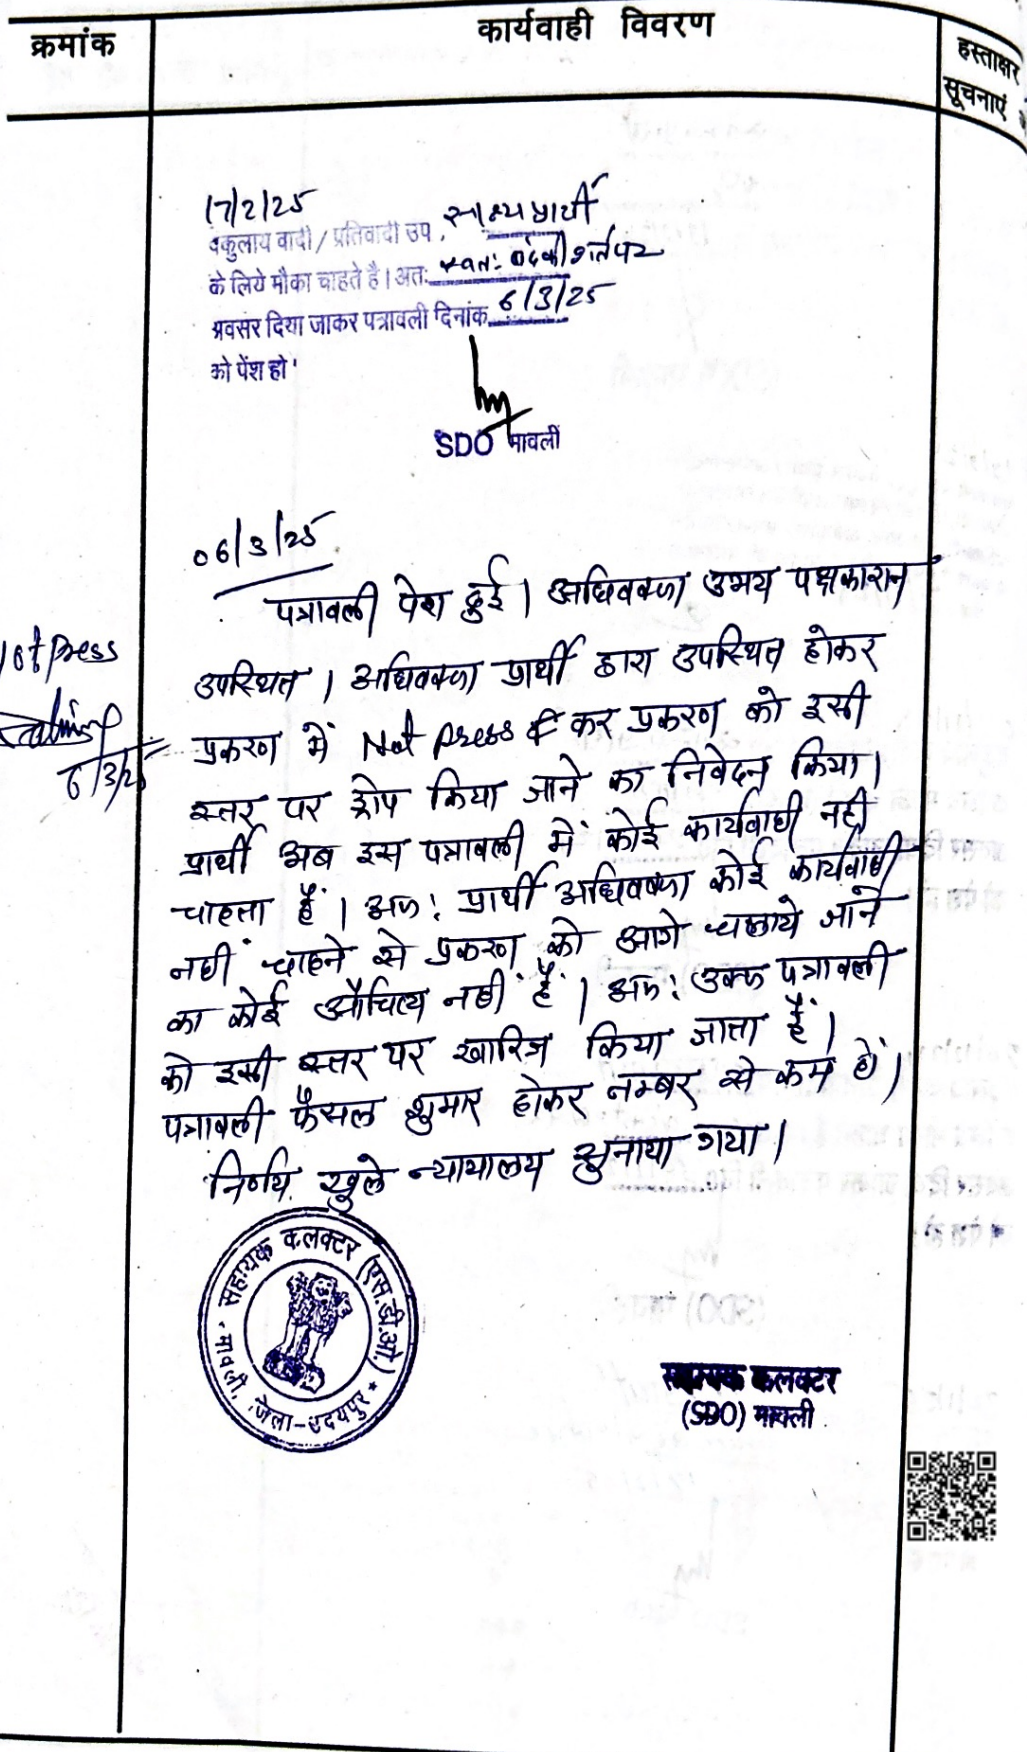 क्रमांक
कार्यवाही विवरण
हस्ताक्षर
सूचनाएं
17/2/25
वकुलाय वादी / प्रतिवादी उप. साक्ष्य प्रार्थी
के लिये मौका चाहते है। अतः स्वतः बंद की शर्त पर
अवसर दिया जाकर पत्रावली दिनांक 6/3/25
को पेंश हो
SDO मावली
06/3/25
पत्रावली पेश हुई। अधिवक्ता उभय पक्षकारान
उपस्थित। अधिवक्ता प्रार्थी द्वारा उपस्थित होकर
प्रकरण में Not press कर प्रकरण को इसी
स्तर पर ड्रोप किया जाने का निवेदन किया।
प्रार्थी अब इस पत्रावली में कोई कार्यवाही नही
चाहता हैं। अतः प्रार्थी अधिवक्ता कोई कार्यवाही
नहीं चाहने से प्रकरण को आगे चलाये जाने
का कोई औचित्य नहीं हैं। अतः उक्त पत्रावली
को इसी स्तर पर खारिज किया जाता हैं।
पत्रावली फैसल शुमार होकर नम्बर से कम हो।
निर्णय खुले न्यायालय सुनाया गया।
Not press
6/3/25
सहायक कलक्टर (एस.डी.ओ.)
मावली, जिला-उदयपुर
सहायक कलक्टर
(SDO) मावली